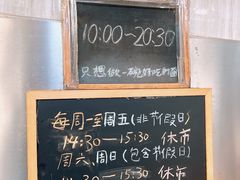 10:00—20:30
只想做一碗好吃的面
每周一至周五(非节假日)
14:30—15:30 休市
周六、周日(包含节假日)
14:30—15:30 休市